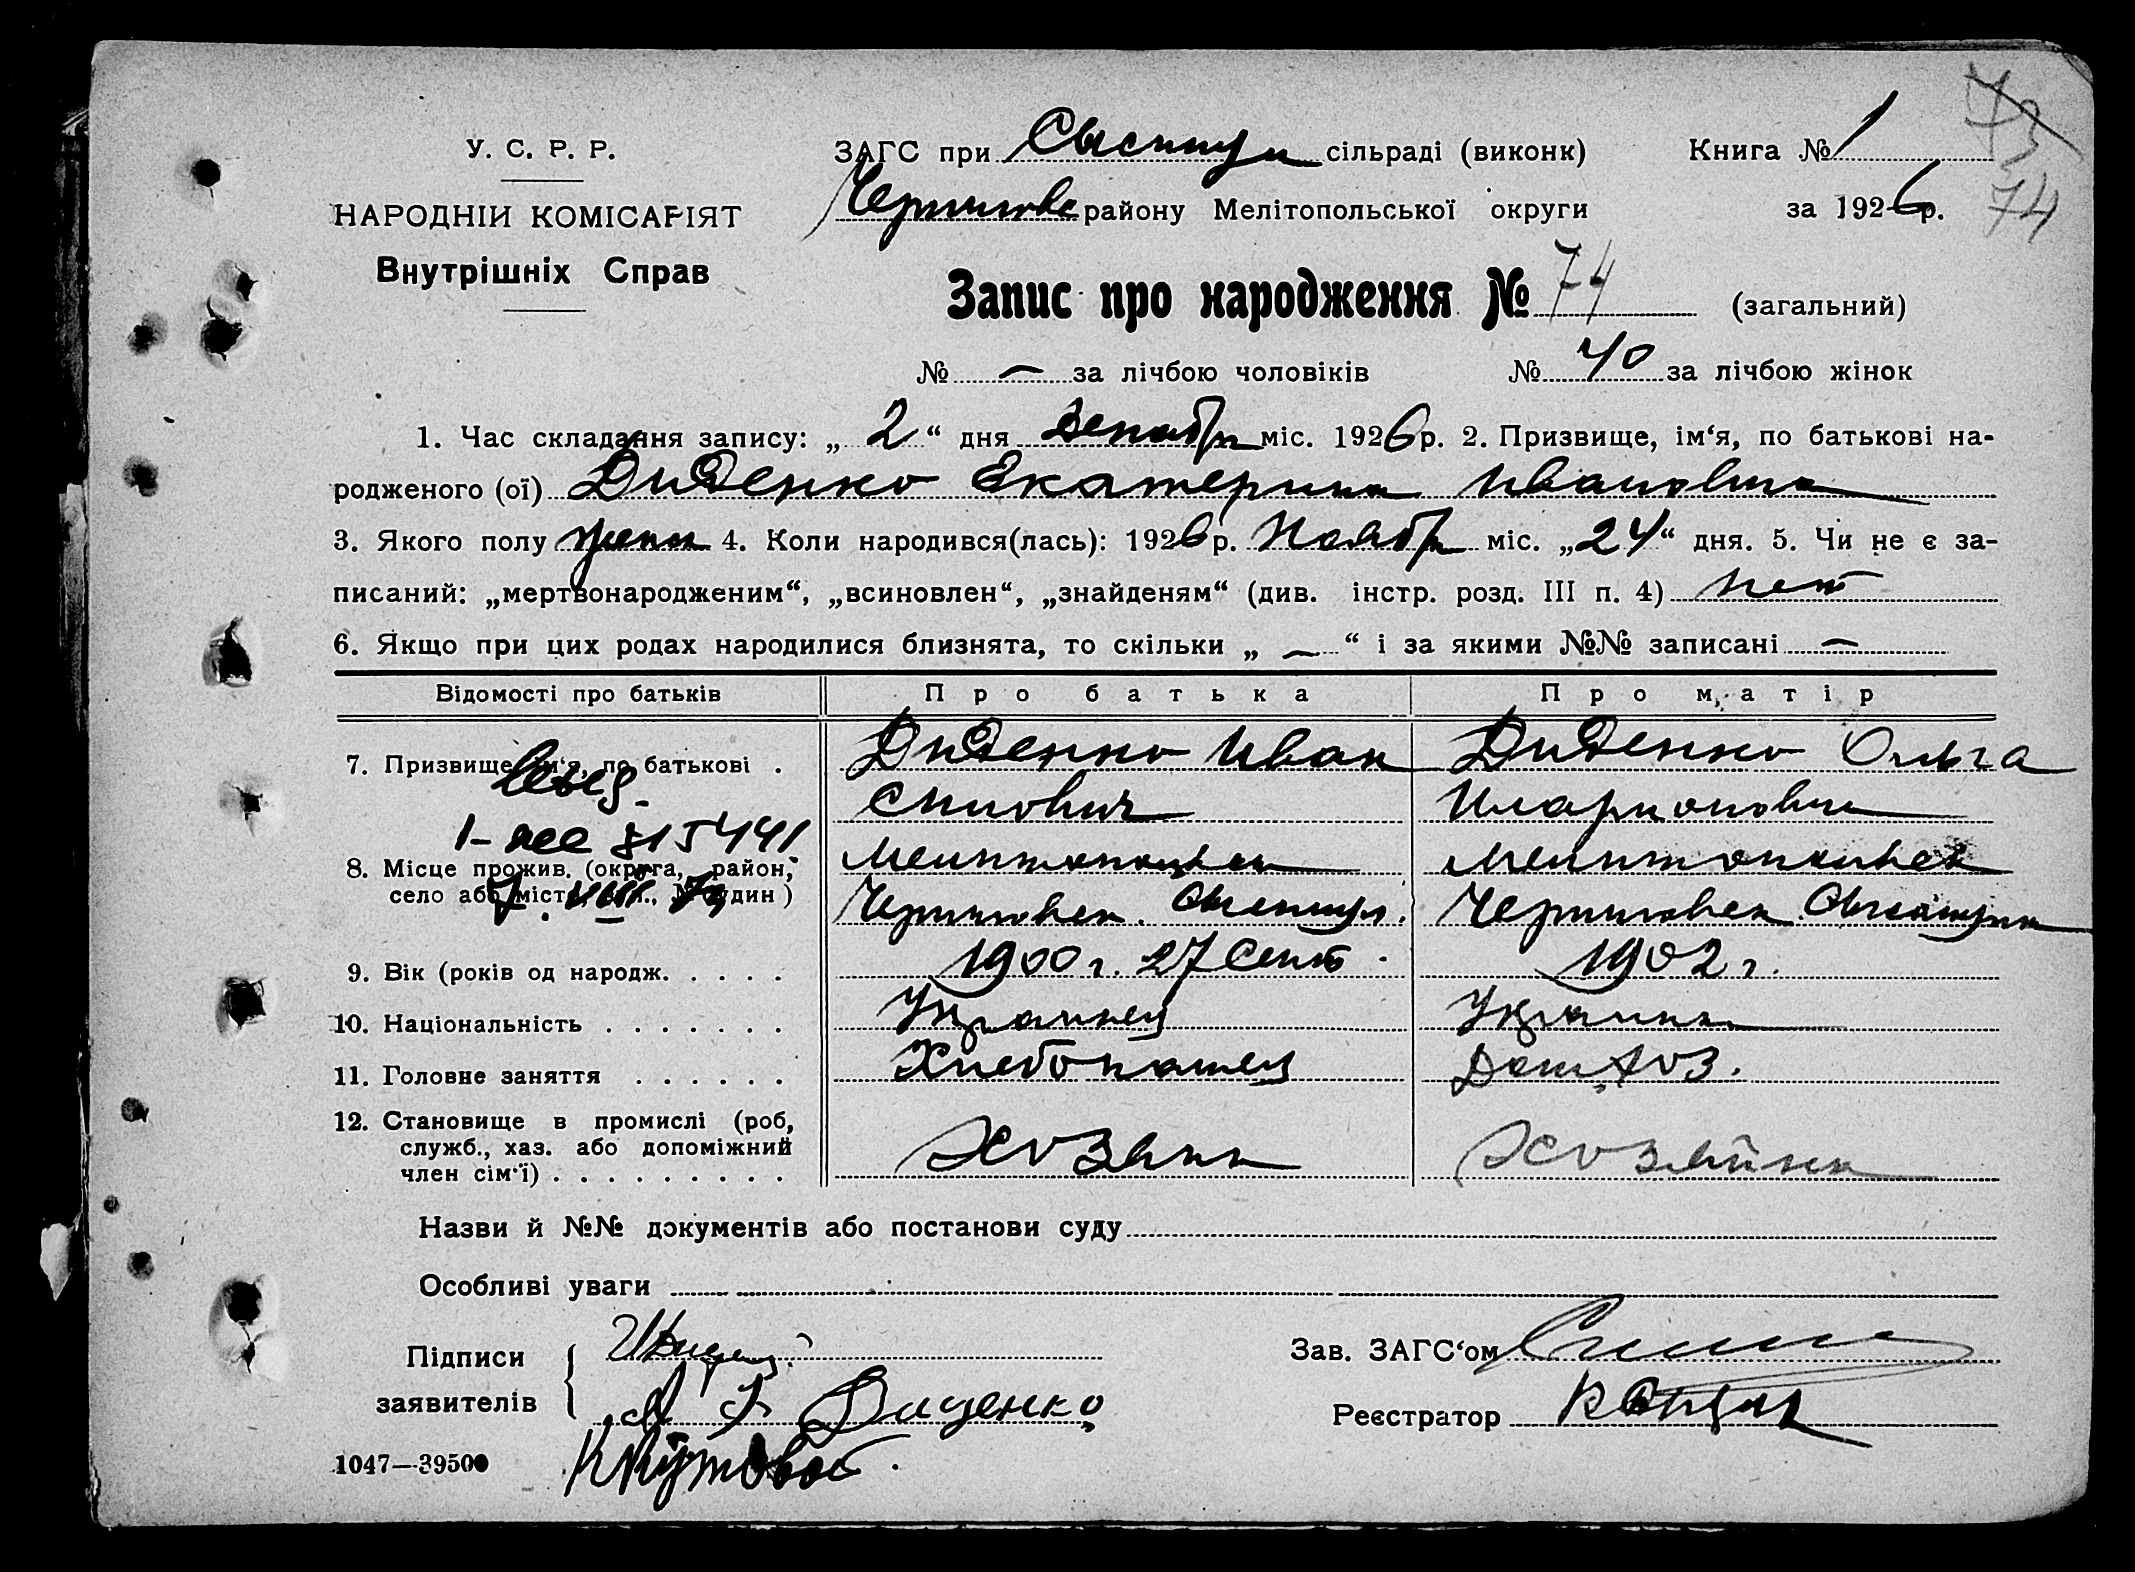 У. С. Р. Р.
НАРОДНІЙ КОМІСАРІЯТ
Внутрішніх Справ
ЗАГС при сільраді (виконк)
району Мелітопольської округи
Книга № 1
за 1926 р.
73
74
Запис про народження № 74 (загальний)
№ — за лічбою чоловіків № 40 за лічбою жінок
1. Час складання запису: „ 2 “ дня Декабр міс. 1926 р. 2. Призвище, ім‘я, по батькові на-
родженого (ої) Диденко Екатерина Ивановна
3. Якого полу жен 4. Коли народився(лась): 1926 р. Ноябр міс. „ 24 “ дня. 5. Чи не є за-
писаний: „мертвонародженим“, „всиновлен“, „знайденям“ (див. інстр. розд. III п. 4) нет
6. Якщо при цих родах народилися близнята, то скільки „ — “ і за якими №№ записані —
Відомості про батьків Про батька Про матір
7. Призвище, ім‘я, по батькові . Диденко Иван Диденко Ольга
Иларионовна
8. Місце прожив. (округа, район, Мелитопольск Мелитопольск
село або місто, вул., № будин) Черниговск Черниговск
9. Вік (років од народж. . . . . 1900 г. 27 Сент 1902 г.
10. Національність . . . . . . . Украинец Украинка
11. Головне заняття . . . . . . Хлебопашец Дом. хоз.
12. Становище в промислі (роб,
служб., хаз. або допоміжний
член сім‘ї) . . . . . . . . . Хозяин Хозяйка
Назви й №№ документів або постанови суду
Особливі уваги
Підписи
заявителів Диденко
Зав. ЗАГС‘ом
Реєстратор
1047—39500